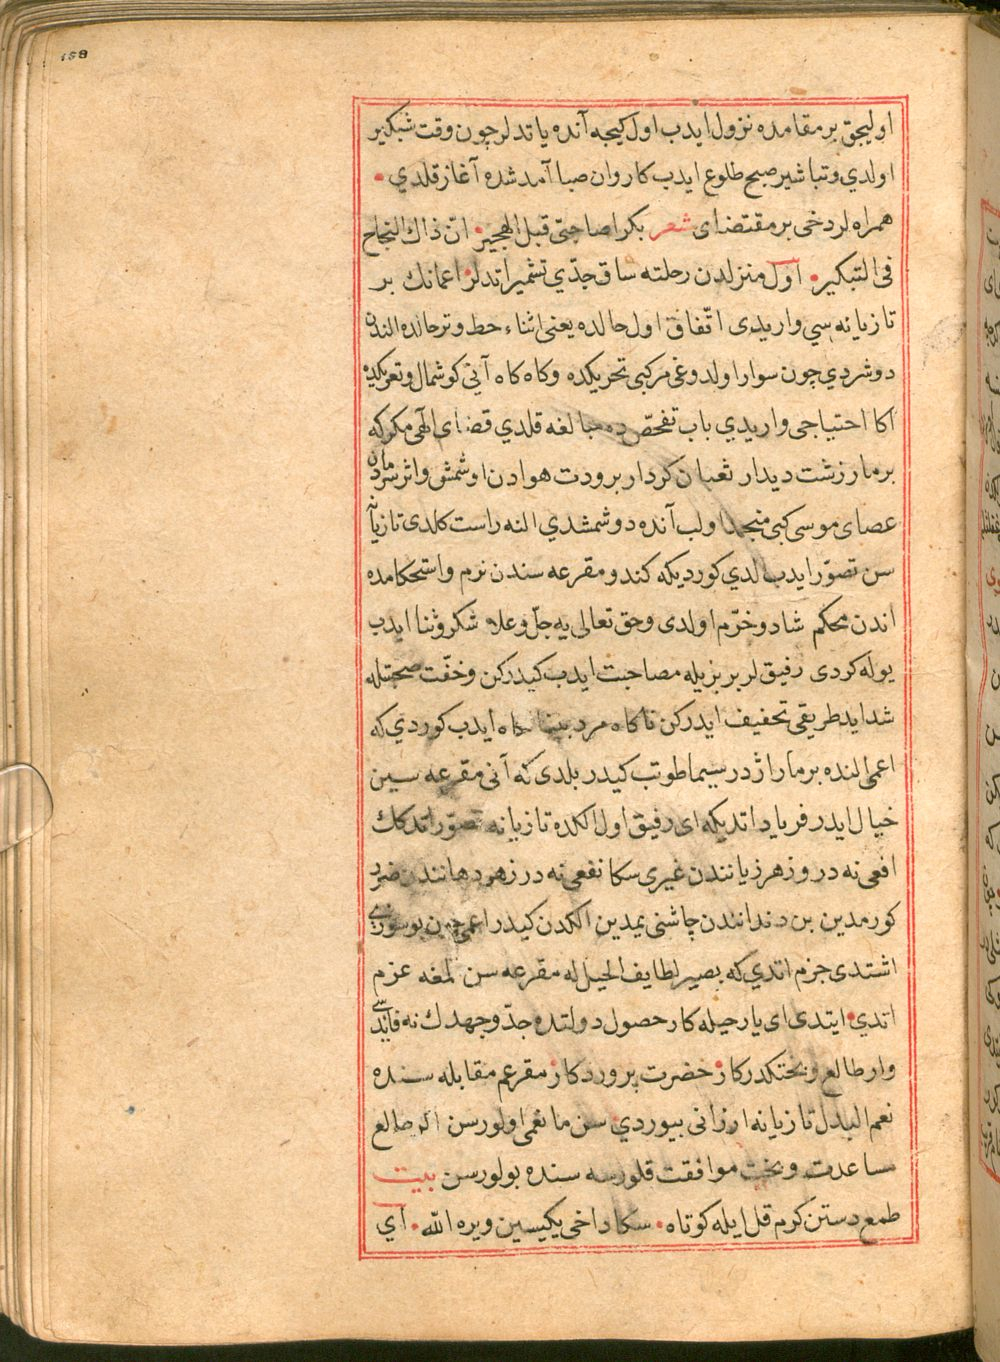 158
اوليجق بر مقامده نزول ايدب اول كيجه آنده ياتدلر چون وقت شبكير
اولدي و تباشير صبح طلوع ايدب كاروان صبا آمد شده آغاز قلدي
همراه لر دخى بر مقتضاى شعر بكرا صاحبّى قبل الهجير انّ ذاك النجاح
فى التبكير اول منزلدن رحلته ساق جدّي تشمير اتدلر اعمانك بر
تازيانه سي واريدى اتّفاق اول حالده يعنى اثناء حط و ترحالده الندن
دوشردي چون سوار اولدوغى مركبى تحريكده و كاه كاه آنى كوشمال و تعريكده
آكا احتياجى واريدي باب تفحّص ده مبالغه قلدي قضاى الهى مكر كه
بر مار زشت ديدار ثعبان كردار برودت هوادن اوشمش و اثر سرمادن
عصاى موسى كبى منجمد اولب آنده دوشمشدي النه راست كلدى تازيانه
سن تصوّر ايدب الدي كورديكه كندو مقرعه سندن نرم و استحكامده
اندن محكم شاد و خرّم اولدى و حق تعالى يه جلّ و علا شكر و ثنا ايدب
يوله كردى رفيق لر بربريله مصاحبت ايدب كيدركن و خفّت صحبتله
شدايد طريقى تخفيف ايدركن ناكاه مرد بينا نكاه ايدب كوردي كه
اعمى النده بر مار اژدر سيما طوتب كيدر بلدى كه آنى مقرعه سين
خيال ايدر فرياد اتديكه اى رفيق اول الكده تازيانه تصوّر اتدكك
افعى نه در و زهر زيانندن غيرى سكا نفعى نه در زهر دهانندن ضرر
كورمدين بن دندانندن چاشنى يمدين الكدن كيدر اعمى چون بو سوزى
اشتدى جزم اتدي كه بصير لطايف الحيل له مقرعه سن المغه عزم
اتدي ايتدى اى يار حيله كار حصول دولتده جدّ و جهدك نه فايدسى
وار طالع و بختكدر كار حضرت پروردكار مقرعم مقابله سنده
نعم البدل تازيانه ارزانى بيوردي سن مانعمى اولورسن اكر طالع
مساعدت و بخت موافقت قلورسه سنده بولورسن بيت
طمع دستن كرم قل ايله كوتاه سكا داخى يكيسين ويره الله اي